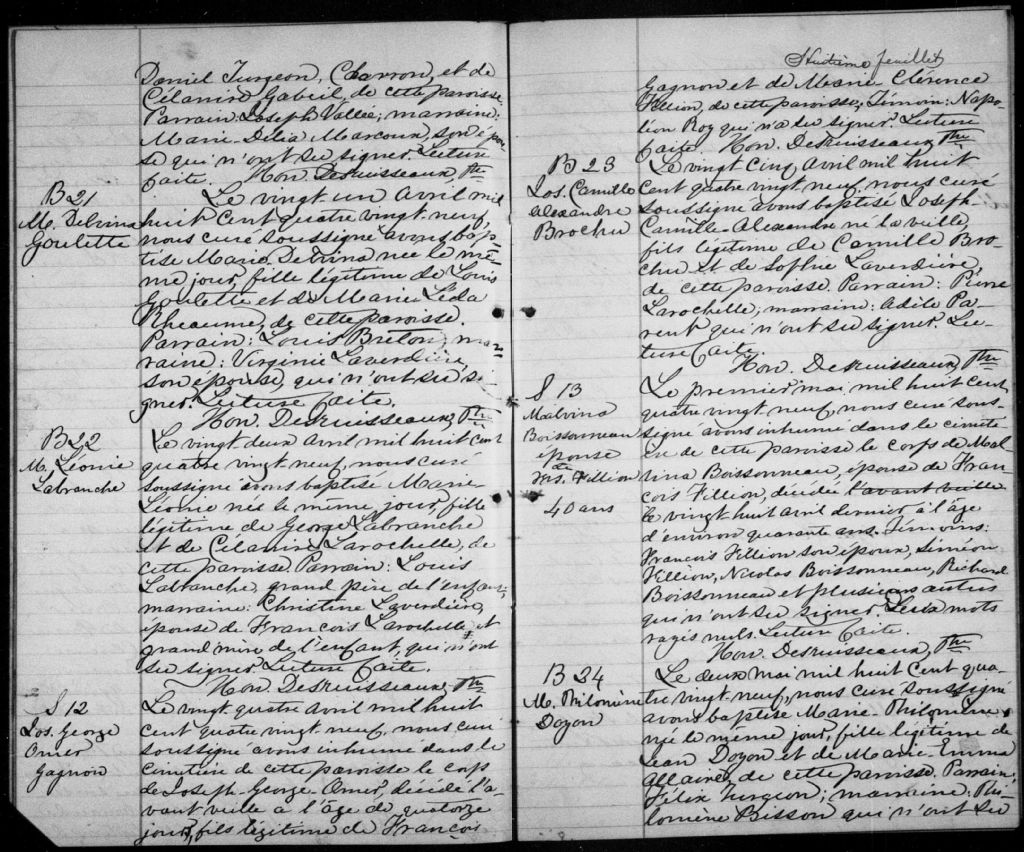 Daniel Turgeon, Charron, et de
Célanire Gabeil, de cette paroisse.
Parrain: Joseph Vallié; marraine:
Marie-Délia Marcoux, son épou-
se qui n'ont su signer. Lecture
faite. Hon. DesRuisseaux, Ptre
B 21
M. Delvina
Goulette
Le vingt un avril mil
huit cent quatre vingt neuf,
nous curé soussigné avons bap-
tisé Marie Delvina née le mê-
me jour, fille légitime de Louis
Goulette et de Marie Léda
Rheaume, de cette paroisse.
Parrain: Louis Breton, mar-
raine: Virginie Laverdière,
son épouse, qui n'ont su si-
gner. Lecture faite.
Hon. DesRuisseaux, Ptre
B 22
M. Léonie
Labranche
Le vingt deux avril mil huit cent
quatre vingt neuf, nous curé
soussigné avons baptisé Marie-
Léonie née le même jour, fille
légitime de George Labranche
et de Célanire Larochelle, de
cette paroisse. Parrain: Louis
Labranche, grand père de l'enfant
marraine: Christine Laverdière,
épouse de François Larochelle, et
grand mère de l'enfant, qui n'ont
su signer. Lecture faite.
Hon. DesRuisseaux, Ptre
S 12
Jos. George
Omer
Gagnon
Le vingt quatre avril mil huit
cent quatre vingt neuf, nous curé
soussigné avons inhumé dans le
cimetière de cette paroisse le corps
de Joseph-George-Omer, décédé l'a-
vant veille à l'âge de quatorze
jours, fils légitime de François
Huitième feuillet
Gagnon et de Marie Clérence
Fillion, de cette paroisse; Témoin: Napo-
léon Roy qui n'a su signer. Lecture
faite. Hon. DesRuisseaux, Ptre
B 23
Jos. Camille
Alexandre
Brochu
Le vingt cinq avril mil huit
cent quatre vingt neuf, nous curé
soussigné avons baptisé Joseph-
Camille-Alexandre né la veille,
fils légitime de Camille Bro-
chu et de Sophie Laverdière,
de cette paroisse. Parrain: Pierre
Larochelle; marraine: Adèle Pa-
rent qui n'ont su signer. Lec-
ture faite.
Hon. DesRuisseaux, Ptre
S 13
Malvina
Boissonneau
épouse
de
Frs. Fillion
40 ans
Le premier mai mil huit cent
quatre vingt neuf, nous curé sous-
signé avons inhumé dans le cimetiè-
re de cette paroisse le corps de Mal-
vina Boissonneau, épouse de Fran-
çois Fillion, décédée l'avant veille
le vingt huit avril dernier à l'âge
d'environ quarante ans. Témoins:
François Fillion son époux, Siméon
Fillion, Nicolas Boissonneau, Richard
Boissonneau et plusieurs autres
qui n'ont su signer. mots
rayés nuls. Lecture faite.
Hon. DesRuisseaux, Ptre
B 24
M. Philomène
Doyon
Le deux mai mil huit cent qua-
tre vingt neuf, nous curé soussigné
avons baptisé Marie-Philomène,
née le même jour, fille légitime de
Jean Doyon et de Marie-Emma
Allaire, de cette paroisse. Parrain,
Félix Turgeon; marraine: Phi-
lomène Bisson qui n'ont su